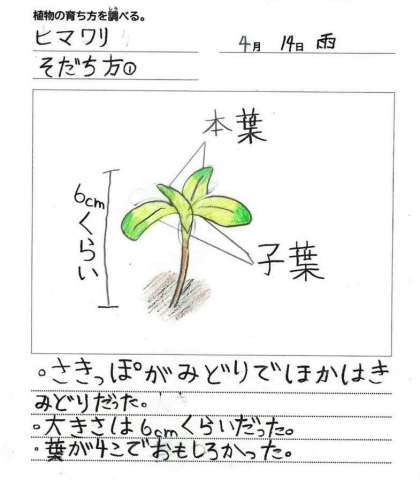 植物の育ち方を調べる。
ヒマワリ
4月 14日 雨
そだち方①
本葉
6cmくらい
子葉
。さきっぽがみどりでほかはき
みどりだった。
。大きさは6cmくらいだった。
。葉が4こでおもしろかった。